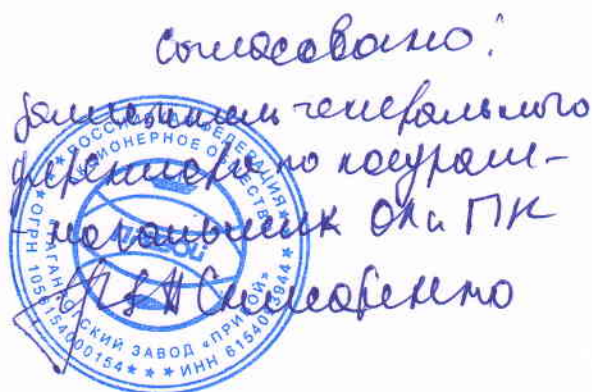 Согласовано:
Заместитель генерального
директора по кадрам –
– начальник ОК и ПК
РОССИЙСКАЯ ФЕДЕРАЦИЯ
АКЦИОНЕРНОЕ ОБЩЕСТВО
ТАГАНРОГСКИЙ ЗАВОД «ПРИБОЙ»
ОГРН 1056154000154
ИНН